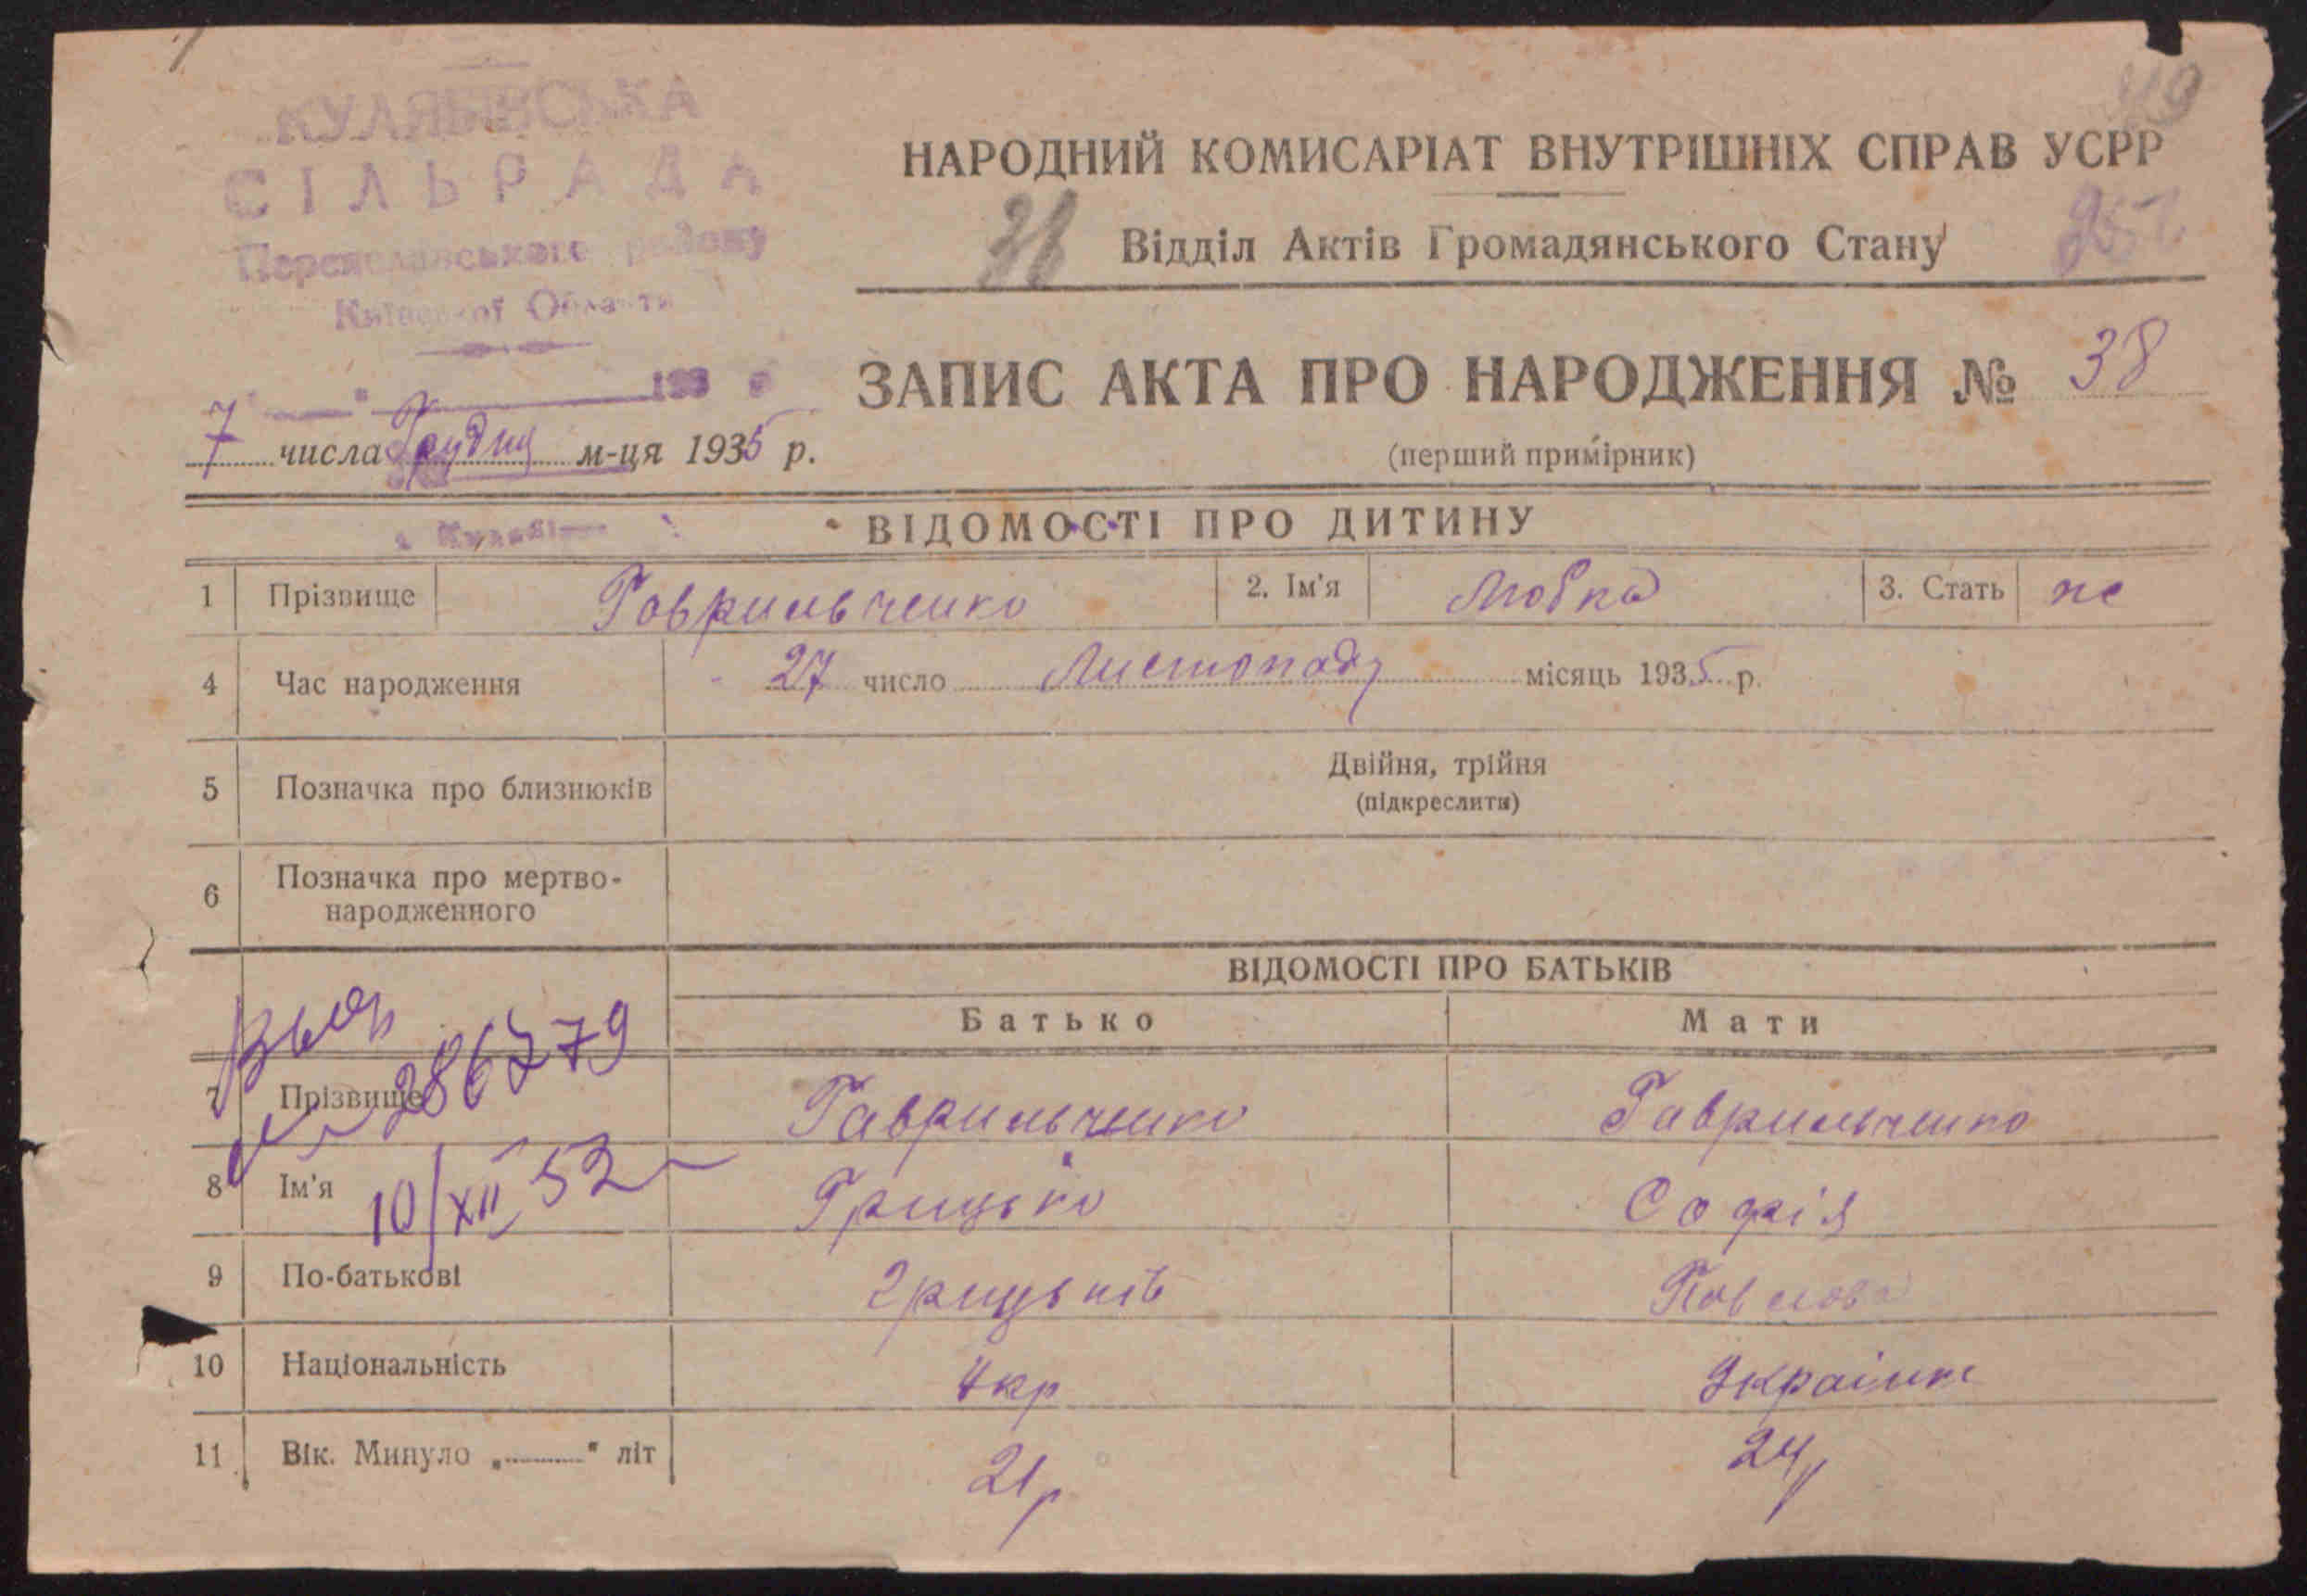 КУЛЯБІНСЬКА
СІЛЬРАДА
Переяславського району
Київської Області
193
7 числа Грудня м-ця 1935 р.
49
НАРОДНИЙ КОМИСАРІАТ ВНУТРІШНІХ СПРАВ УСРР
Відділ Актів Громадянського Стану
ЗАПИС АКТА ПРО НАРОДЖЕННЯ № 38
(перший примірник)
ВІДОМОСТІ ПРО ДИТИНУ
1 Прізвище Гаврильченко 2. Ім'я Любка 3. Стать ж
4 Час народження 27 число Листопаду місяць 1935 р.
5 Позначка про близнюків Двійня, трійня
(підкреслити)
6 Позначка про мертво-
народженного
ВІДОМОСТІ ПРО БАТЬКІВ
Батько Мати
7 Прізвище Гаврильченко Гаврильченко
286279
8 Ім'я Грицько Софія
10/XII 52
9 По-батькові Грицьків Павлова
10 Національність Укр Українка
11 Вік. Минуло „ " літ 21р 24р